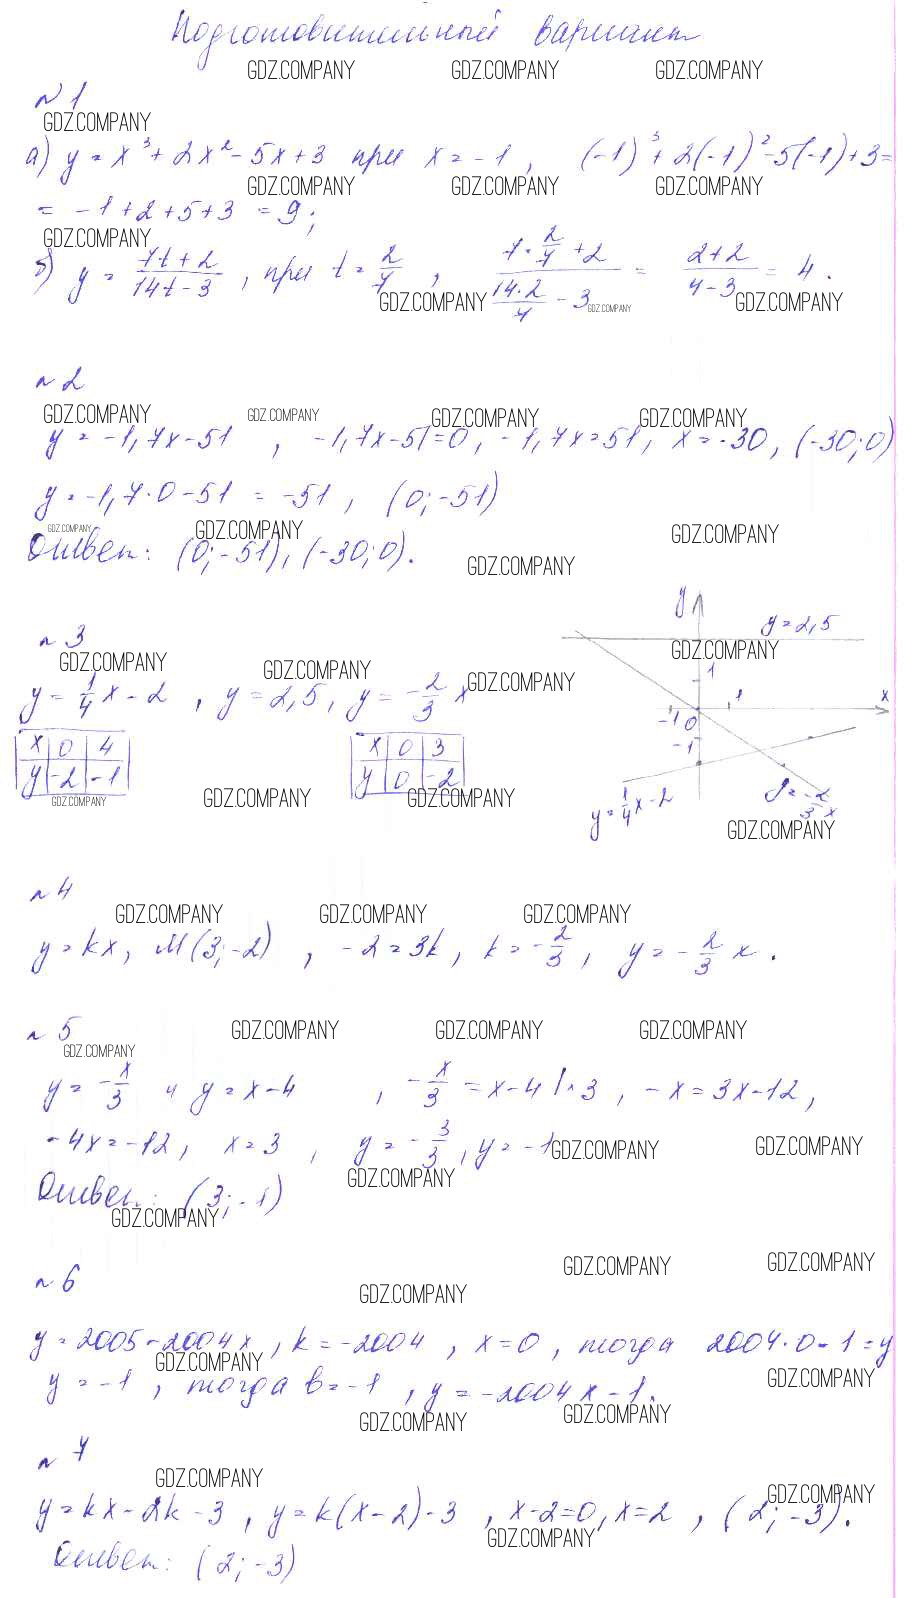 Подготовительный вариант
GDZ.COMPANY GDZ.COMPANY GDZ.COMPANY
№ 1
GDZ.COMPANY
а) y = x³ + 2x² - 5x + 3 при x = -1, (-1)³ + 2(-1)² - 5(-1) + 3 =
GDZ.COMPANY GDZ.COMPANY GDZ.COMPANY
= -1 + 2 + 5 + 3 = 9;
GDZ.COMPANY
б) y = (7t + 2)/(14t - 3), при t = 2/7, (7·2/7 + 2)/(14·2/7 - 3) = (2+2)/(4-3) = 4.
GDZ.COMPANY GDZ.COMPANY GDZ.COMPANY
№ 2
GDZ.COMPANY GDZ.COMPANY GDZ.COMPANY GDZ.COMPANY
y = -1,7x - 51, -1,7x - 51 = 0, -1,7x = 51, x = -30, (-30; 0)
y = -1,7·0 - 51 = -51, (0; -51)
GDZ.COMPANY GDZ.COMPANY GDZ.COMPANY
Ответ: (0; -51), (-30; 0).
GDZ.COMPANY
№ 3
GDZ.COMPANY GDZ.COMPANY GDZ.COMPANY
y = 1/4 x - 2, y = 2,5, y = -2/3 x
x 0 4
y -2 -1
x 0 3
y 0 -2
GDZ.COMPANY GDZ.COMPANY GDZ.COMPANY
y
y = 2,5
GDZ.COMPANY
1
1
x
-1 0
-1
y = 1/4 x - 2
y = -2/3 x
GDZ.COMPANY
№ 4
GDZ.COMPANY GDZ.COMPANY GDZ.COMPANY
y = kx, M(3; -2), -2 = 3k, k = -2/3, y = -2/3 x.
№ 5
GDZ.COMPANY GDZ.COMPANY GDZ.COMPANY
GDZ.COMPANY
y = -x/3 и y = x - 4, -x/3 = x - 4 |·3, -x = 3x - 12,
-4x = -12, x = 3, y = -3/3, y = -1
GDZ.COMPANY GDZ.COMPANY
GDZ.COMPANY
Ответ: (3; -1)
GDZ.COMPANY
GDZ.COMPANY GDZ.COMPANY
№ 6
GDZ.COMPANY
y = 2005 - 2004x, k = -2004, x = 0, тогда 2004·0 - 1 = y
GDZ.COMPANY GDZ.COMPANY
y = -1, тогда b = -1, y = -2004x - 1.
GDZ.COMPANY GDZ.COMPANY
№ 7
GDZ.COMPANY GDZ.COMPANY
y = kx - 2k - 3, y = k(x - 2) - 3, x - 2 = 0, x = 2, (2; -3).
GDZ.COMPANY
Ответ: (2; -3)